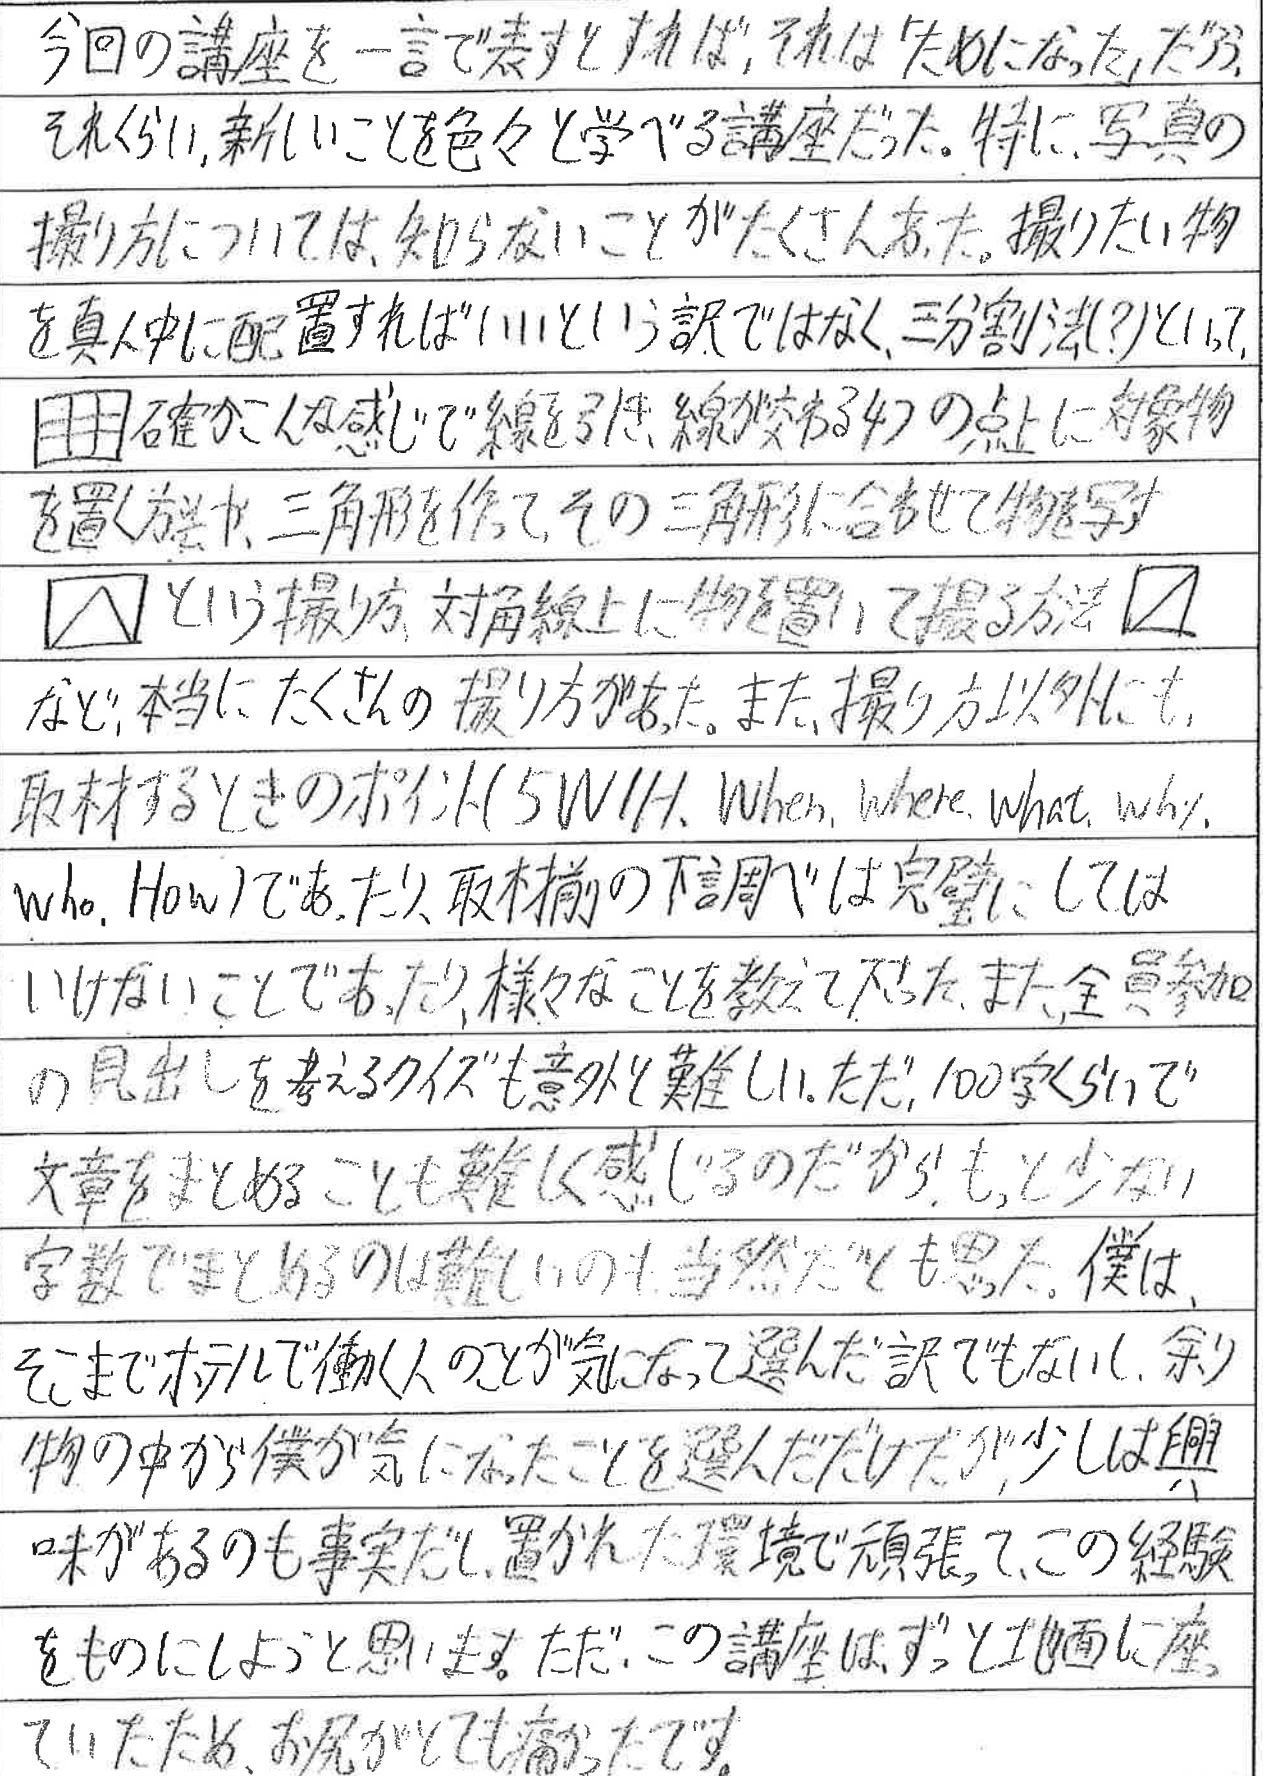 今回の講座を一言で表すとすれば、それは「ためになった」だろう。
それくらい、新しいことを色々と学べる講座だった。特に、写真の
撮り方については、知らないことがたくさんあった。撮りたい物
を真ん中に配置すればいいという訳ではなく、三分割法(?)といって、
確かこんな感じで線を引き、線が交わる4つの点上に対象物
を置く方法や、三角形を作って、その三角形に合わせて物を写す
という撮り方、対角線上に物を置いて撮る方法
など、本当にたくさんの撮り方があった。また、撮り方以外にも、
取材するときのポイント(5W1H、When、Where、What、Why、
Who、How)であったり、取材前の下調べは完璧にしては
いけないことであったり、様々なことを教えて下さった。また、全員参加
の見出しを考えるクイズも意外と難しい。ただ、100字くらいで
文章をまとめることも難しく感じるのだから、もっと少ない
字数でまとめるのは難しいのも当然だとも思った。僕は、
そこまでホテルで働く人のことが気になって選んだ訳でもないし、余り
物の中から僕が気になったことを選んだだけだが、少しは興
味があるのも事実だし、置かれた環境で頑張って、この経験
をものにしようと思います。ただ、この講座は、ずっと地面に座っ
ていたため、お尻がとても痛かったです。